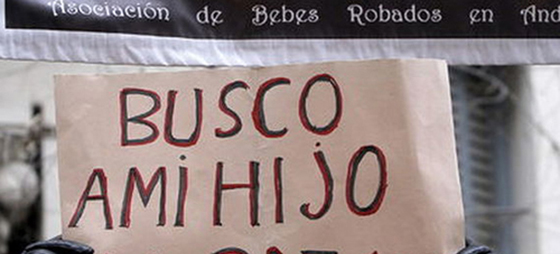 Asociación de Bebes Robados en
BUSCO
A MI HIJO